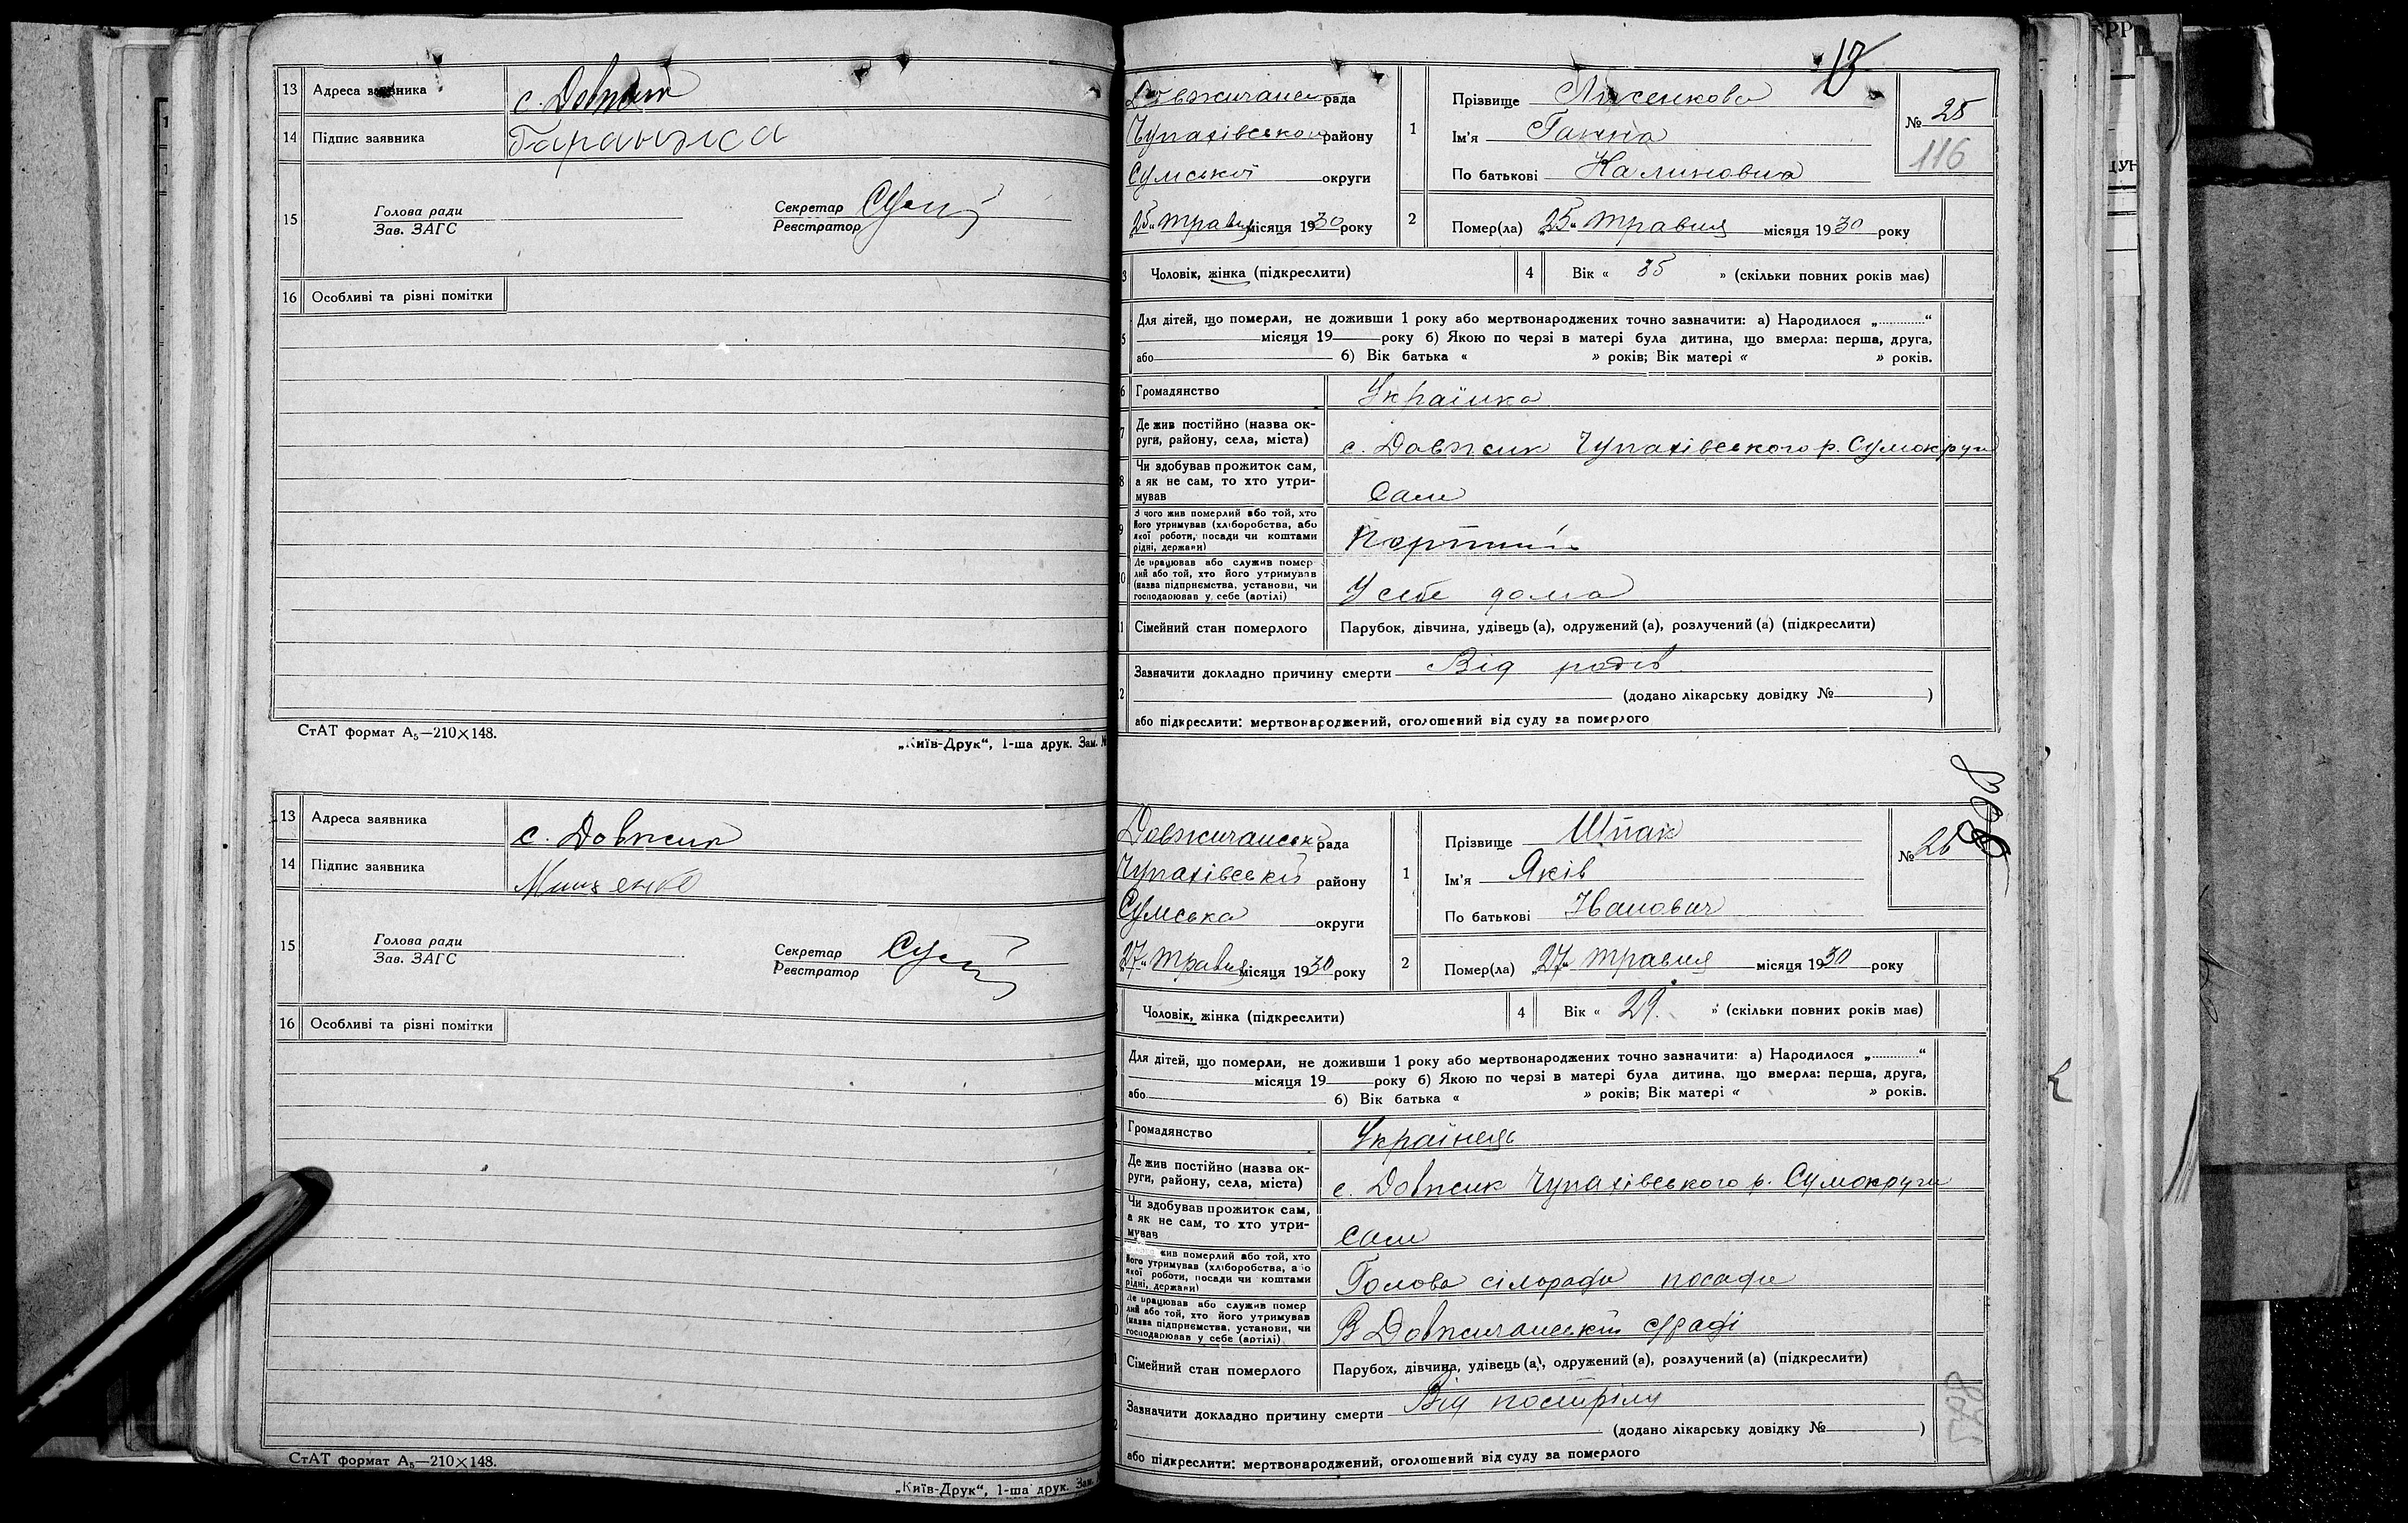 13 Адреса заявника с. Довжик
14 Підпис заявника Таранжса
15 Голова ради Секретар
Зав. ЗАГС Реєстратор
16 Особливі та різні помітки
СтАТ формат А5—210×148.
„Київ-Друк“, 1-ша друк. Зам. №
13 Адреса заявника с. Довжик
14 Підпис заявника Мищенко
15 Голова ради Секретар
Зав. ЗАГС Реєстратор
16 Особливі та різні помітки
СтАТ формат А5—210×148.
„Київ-Друк“, 1-ша друк. Зам.
13
Довжичанськ рада
Чупахівського району
Сумської округи
„25“ травня місяця 1930 року
1 Прізвище Лисенкова
Ім'я Ганна
По батькові Калиновна
№ 25
116
2 Помер(ла) „25“ травня місяця 1930 року
3 Чоловік, жінка (підкреслити) 4 Вік « 35 » (скільки повних років має)
5 Для дітей, що померли, не доживши 1 року або мертвонароджених точно зазначити: а) Народилося „............“
місяця 19 року б) Якою по черзі в матері була дитина, що вмерла: перша, друга,
або б) Вік батька « » років; Вік матері « » років.
6 Громадянство Українка
7 Де жив постійно (назва ок-
руги, району, села, міста) с. Довжик Чупахівського р. Сумокруги
8 Чи здобував прожиток сам,
а як не сам, то хто утри-
мував Сам
9 З чого жив померлий або той, хто
його утримував (хліборобства, або
якої роботи, посади чи коштами
рідні, держави)
10 Де працював або служив помер
лий або той, хто його утримував
(назва підприємства, установи, чи
господарював у себе (артілі) У себе дома
11 Сімейний стан померлого Парубок, дівчина, удівець (а), одружений (а), розлучений (а) (підкреслити)
12 Зазначити докладно причину смерти Від родів
(додано лікарську довідку № )
або підкреслити: мертвонароджений, оголошений від суду за померлого
Довжичанськ рада
Чупахівській району
Сумська округи
„27“ травня місяця 1930 року
1 Прізвище Шпак
Ім'я Яків
По батькові Іванович
№ 26
2 Помер(ла) „27“ травня місяця 1930 року
Чоловік, жінка (підкреслити) 4 Вік « 29. » (скільки повних років має)
Для дітей, що померли, не доживши 1 року або мертвонароджених точно зазначити: а) Народилося „............“
місяця 19 року б) Якою по черзі в матері була дитина, що вмерла: перша, друга,
або б) Вік батька « » років; Вік матері « » років.
Громадянство Українець
Де жив постійно (назва ок-
руги, району, села, міста) с. Довжик Чупахівського р. Сумокруги
Чи здобував прожиток сам,
а як не сам, то хто утри-
мував Сам
жив померлий або той, хто
його утримував (хліборобства, або
якої роботи, посади чи коштами
рідні, держави) Голова сільради посади
Де працював або служив помер
лий або той, хто його утримував
(назва підприємства, установи, чи
господарював у себе (артілі) В Довжичанській с/раді
Сімейний стан померлого Парубок, дівчина, удівець (а), одружений (а), розлучений (а) (підкреслити)
Зазначити докладно причину смерти Від пострілу
(додано лікарську довідку № )
або підкреслити: мертвонароджений, оголошений від суду за померлого